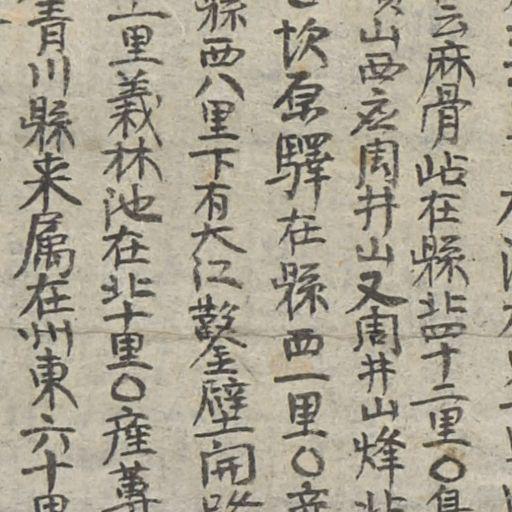 云麻骨岾在縣北四十二里○
山西応周井山又周井山烽北
坎原驛在縣西一里○産
縣西八里下有大江鑿壁開路
里義林池在北十里○産蓴
青川縣来属在州東六十里